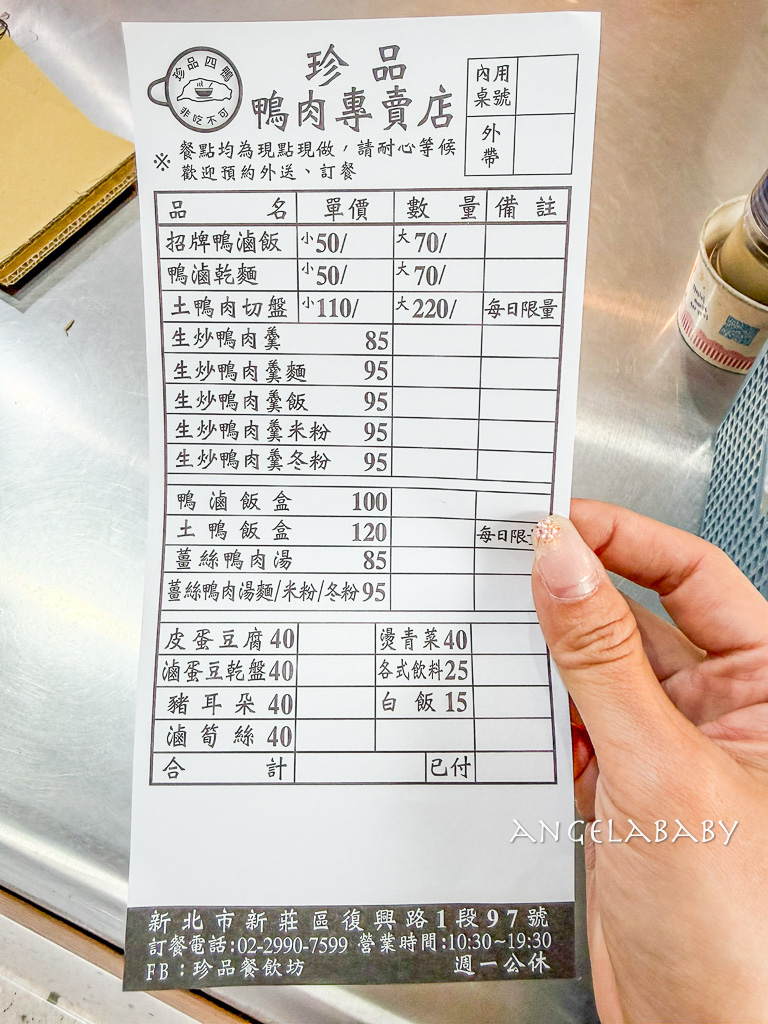 珍品四鴨
非吃不可
珍品
鴨肉專賣店
內用桌號
外帶
※ 餐點均為現點現做，請耐心等候
歡迎預約外送、訂餐
品名 單價 數量 備註
招牌鴨滷飯 小50/ 大70/
鴨滷乾麵 小50/ 大70/
土鴨肉切盤 小110/ 大220/ 每日限量
生炒鴨肉羹 85
生炒鴨肉羹麵 95
生炒鴨肉羹飯 95
生炒鴨肉羹米粉 95
生炒鴨肉羹冬粉 95
鴨滷飯盒 100
土鴨飯盒 120 每日限
薑絲鴨肉湯 85
薑絲鴨肉湯麵/米粉/冬粉 95
皮蛋豆腐 40 燙青菜 40
滷蛋豆乾盤 40 各式飲料 25
豬耳朵 40 白飯 15
滷筍絲 40
合計 已付
ANGELABABY
新北市新莊區復興路1段97號
訂餐電話:02-2990-7599 營業時間:10:30~19:30
FB：珍品餐飲坊 週一公休